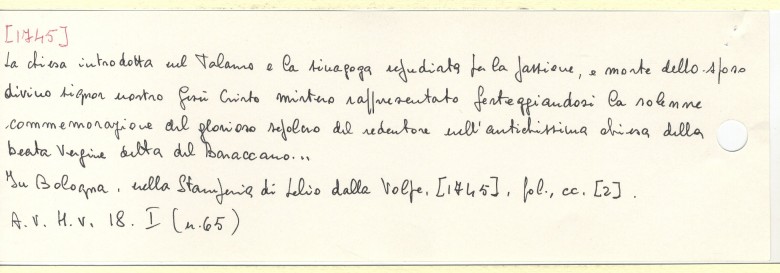 [1745]
La chiesa introdotta nel Talamo e la sinagoga repudiata per la passione, e morte dello sposo
divino signor nostro Gesù Cristo mistero rappresentato festeggiandosi la solenne
commemorazione del glorioso sepolcro del redentore nell'antichissima chiesa della
beata Vergine detta del Baraccano...
In Bologna, nella Stamperia di Lelio dalla Volpe, [1745], fol., cc. [2].
A.V. H.V. 18. I (n.65)